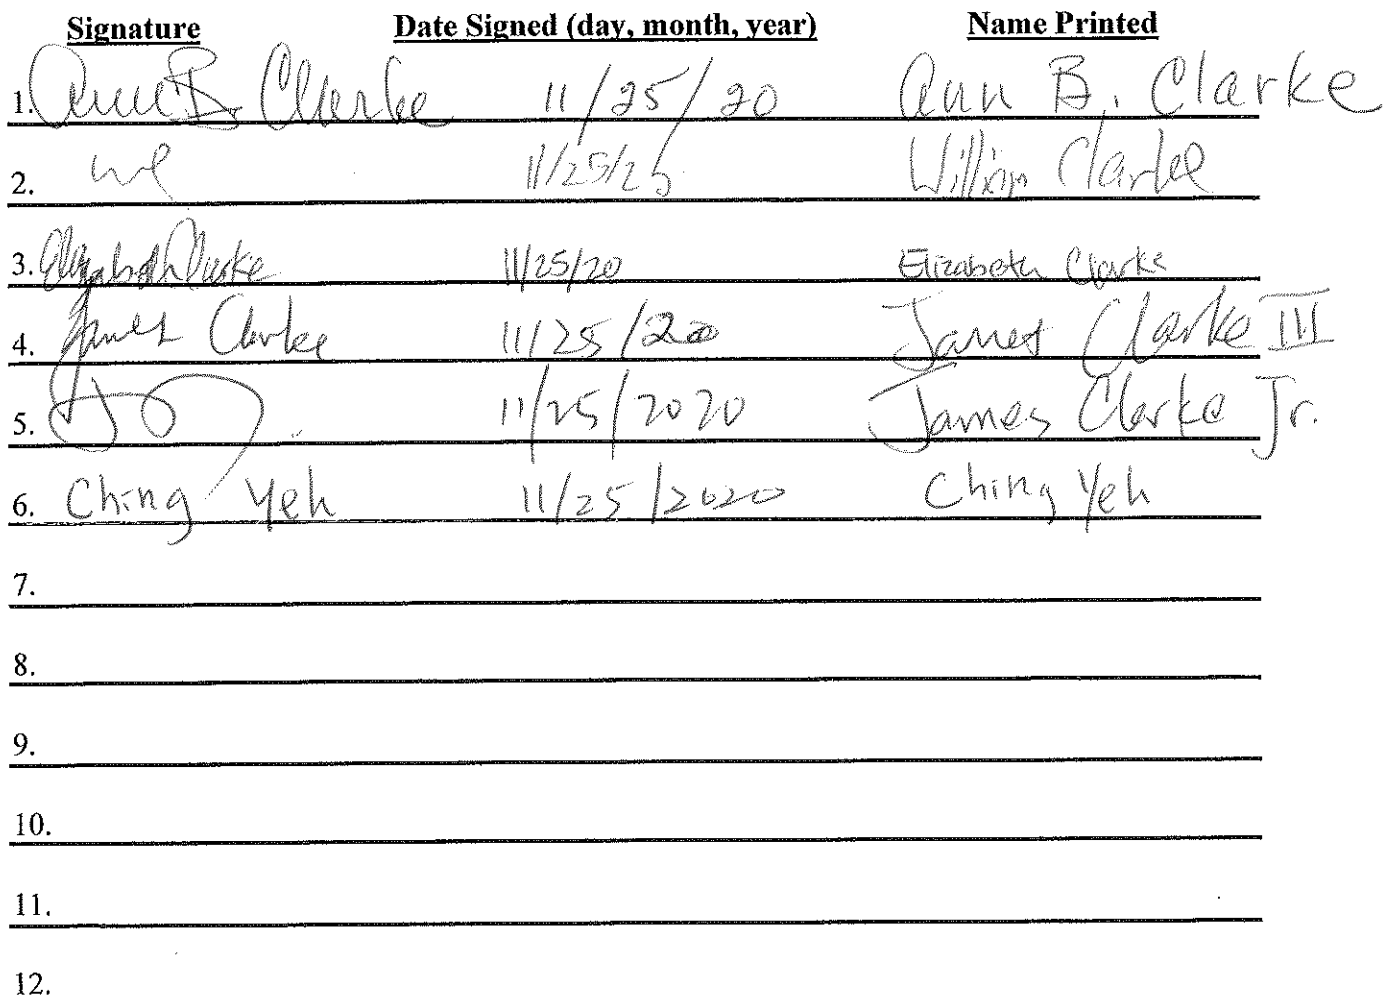 Signature Date Signed (day, month, year) Name Printed
1. Ann B. Clarke 11/25/20 Ann B. Clarke
2. 11/25/25 William Clarke
3. Elizabeth Clarke 11/25/20 Elizabeth Clarke
4. James Clarke 11/25/20 James Clarke III
5. 11/25/2020 James Clarke Jr.
6. Ching Yeh 11/25/2020 Ching Yeh
7.
8.
9.
10.
11.
12.